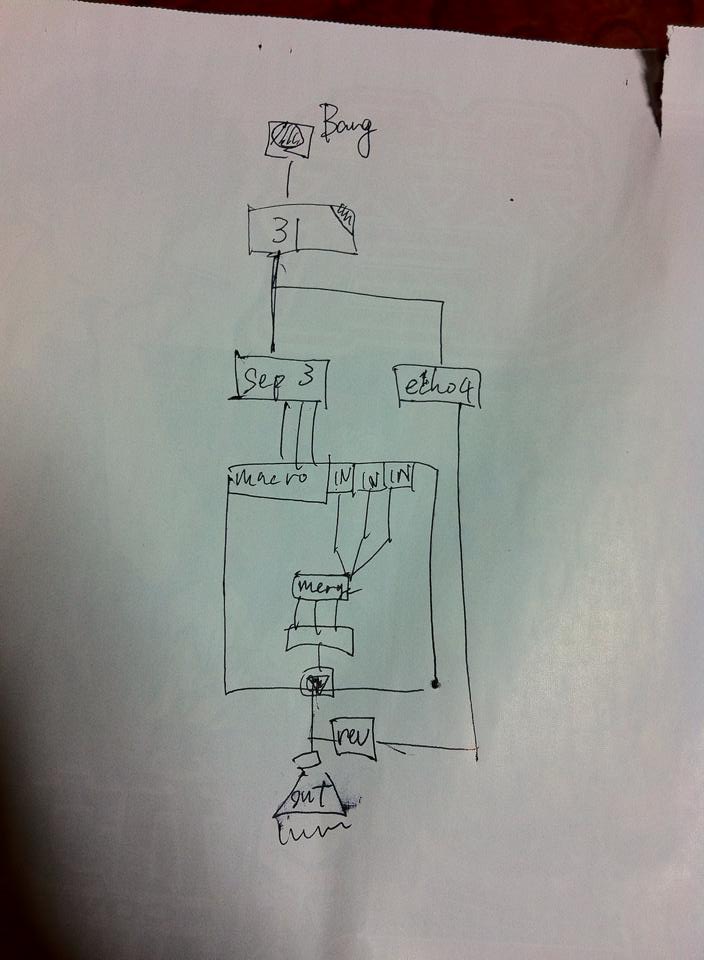 Bang
3
Sep 3
echo4
macro IN IN IN
merge
rev
out